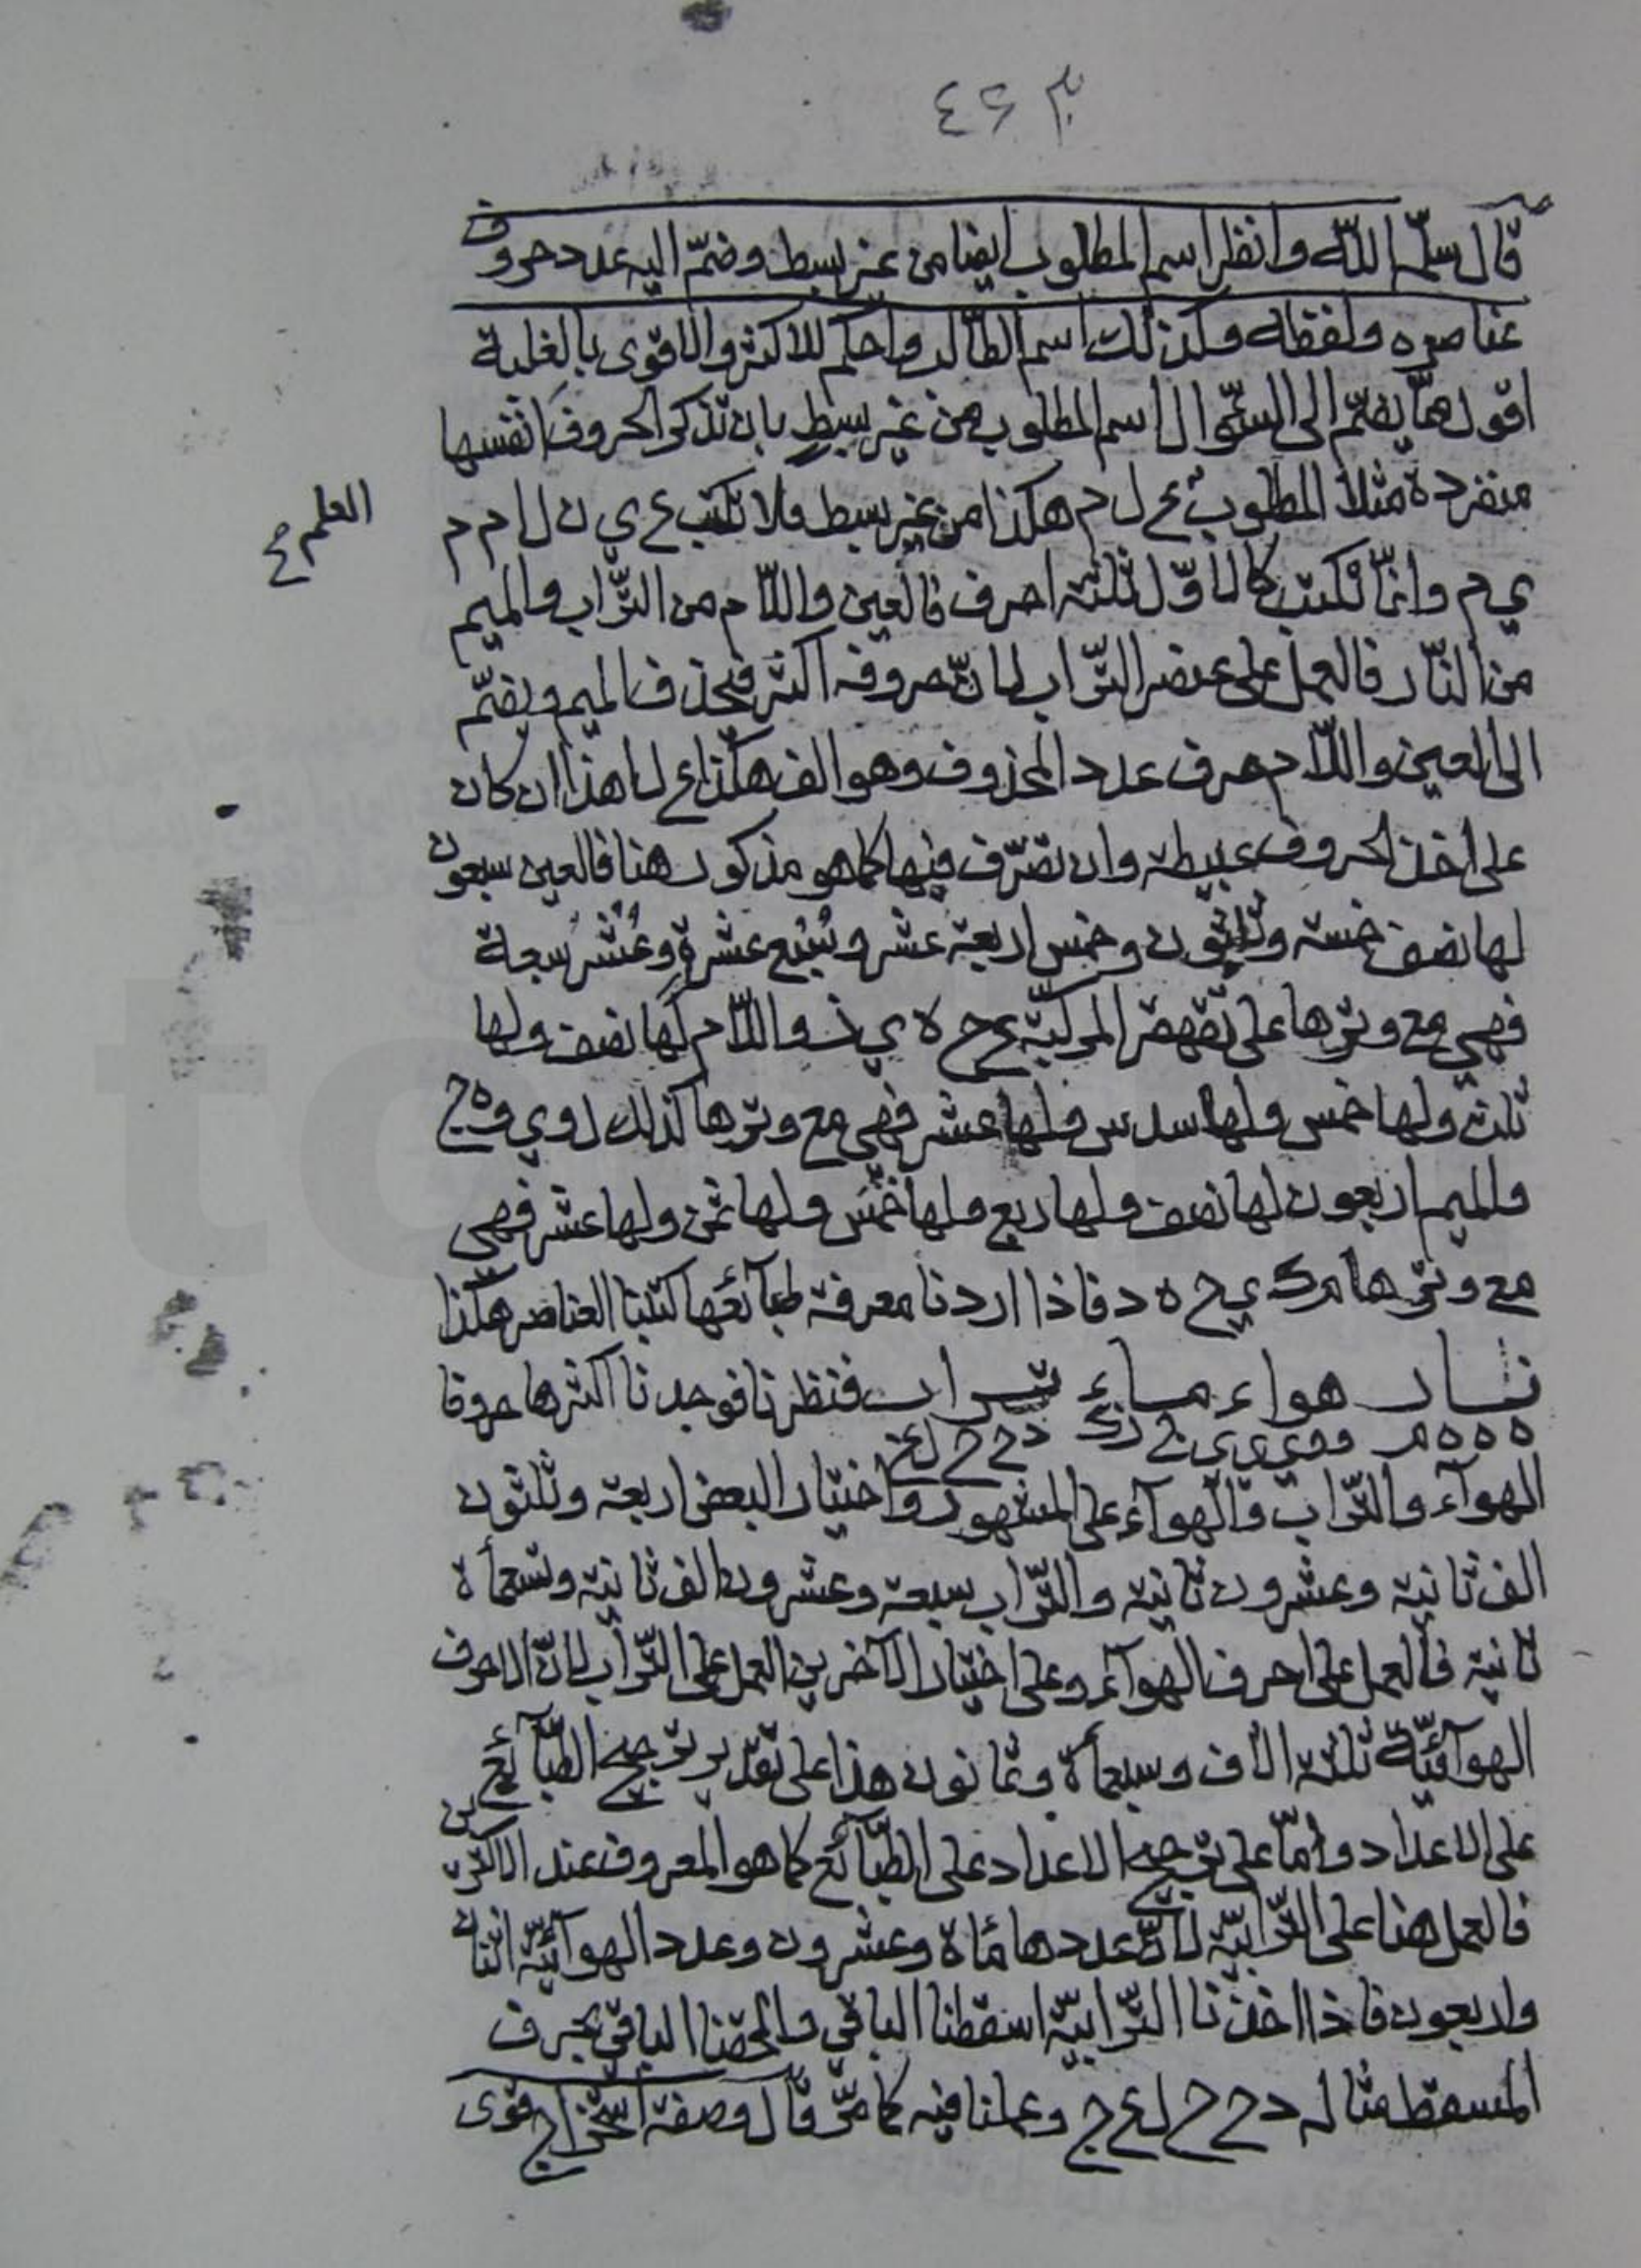 قال سلمه الله وانظر اسم المطلوب ايضا من غير بسط وضمّ اليه عدد حروف
عناصره ولفظه وكذلك اسم الطالب واحكم للاكثر والاقوى بالغلبة
اقول مما يضمّ الى السؤال اسم المطلوب من غير بسط بان تذكر الحروف انفسها
منفردة مثلا المطلوب ع ل م هكذا من غير بسط فلا تكتب ع ي ن ل ا م م
العلم
ي م وانما تكتب كالاوّل ثلثة احرف فالعين واللام من التراب والميم
من النّار فالعمل على عنصر التّراب لانّ حروفه اكثر فيحذف الميم ويضمّ
الى العين واللام حرف عدد المحذوف وهو الف هكذا ع ل ا هذا ان كان
على اخذ الحروف عبيطة وان تصرّف فيها كما هو مذكور هنا فالعين سبعون
لها نصف خمسة وثلثون وخمس اربعة عشر وسبع عشرة وعُشر سبعة
فهي مع وترها على تقهقر المركبة ع ح ه ي ذ واللام لها نصف ولها
ثلث ولها خمس ولها سدس ولها عشر فهي مع وترها كذلك ل و ي و ه ج
والميم اربعون لها نصف ولها ربع ولها خمس ولها ثمن ولها عشر فهي
مع وترها م ك ي ح ه د فاذا اردنا معرفة طبآئعها كتبنا العناصر هكذا
نار هواء ماء تراب فنظرنا فوجدنا اكثرها حروفا
ه ه ه م و و ي ي ي ن ز ك د ح ح ل ع
الهوآء والتّراب والهوآء على المشهور واختيار البعض اربعة وثلثون
الف ثانية وعشرون ثانية والتّراب سبعة وعشرون الف ثانية وتسعمأة
ثانية فالعمل على احرف الهوآء وعلى اختيار الآخرين العمل على التّراب لانّ الاحرف
الهوآئيّة ثلثة الاف وسبعمأة وثمانون هذا على تقدير ترجيح الطّبآئع
على الاعداد وامّا على ترجيح الاعداد على الطّبآئع كما هو المعروف عند الاكثرين
فالعمل هنا على التّرابيّة لانّ عددها مأة وعشرون وعدد الهوآئيّة اثنان
واربعون فاذا اخذنا التّرابيّة اسقطنا الباقي والحقنا الباقي بحرف
المسقط مثاله د ح ح ل ع ج وعملنا فيه كما مرّ قال وصفة استخراج قوى